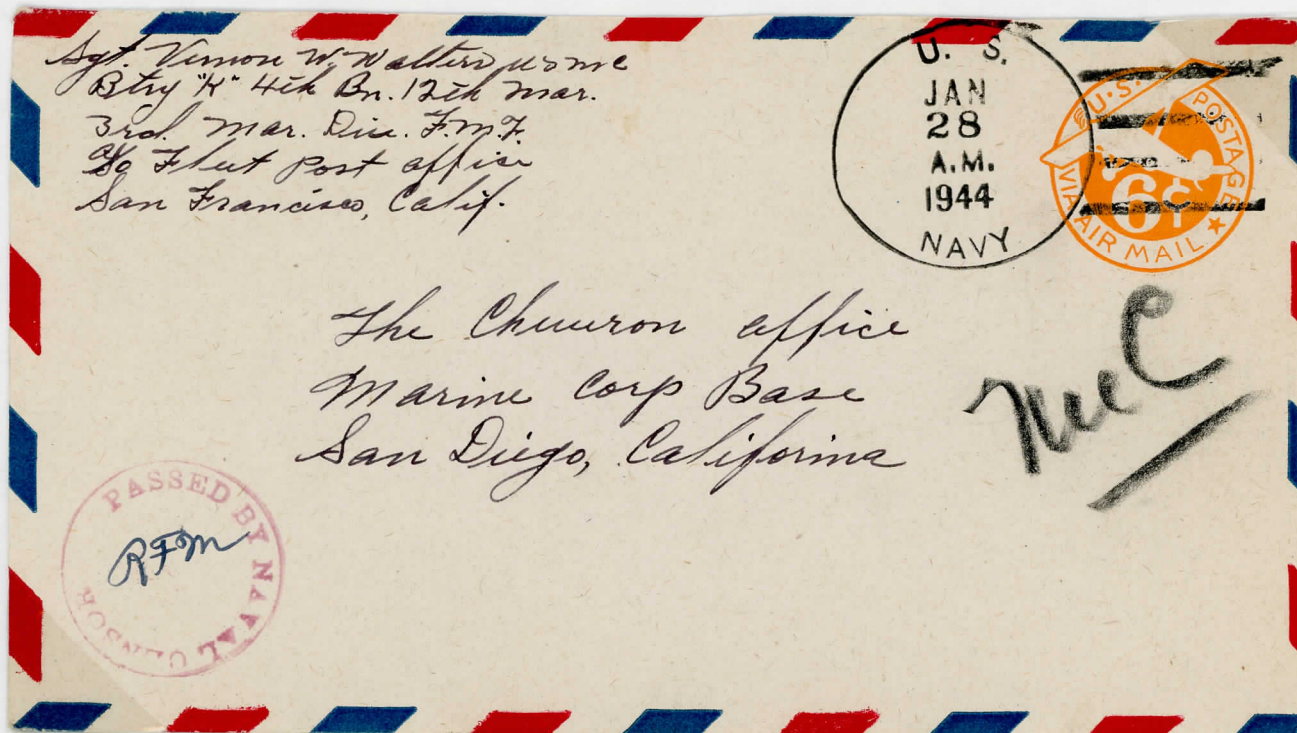 Sgt. Vernon W. Walters USMC
Btry "K" 4th Bn. 12th Mar.
3rd. Mar. Div. F.M.F.
c/o Fleet Post Office
San Francisco, Calif.
U. S.
JAN
28
A.M.
1944
NAVY
U.S. POSTAGE
6¢
VIA AIR MAIL
The Chevron Office
Marine Corp Base
San Diego, California
PASSED BY NAVAL CENSOR
RFM